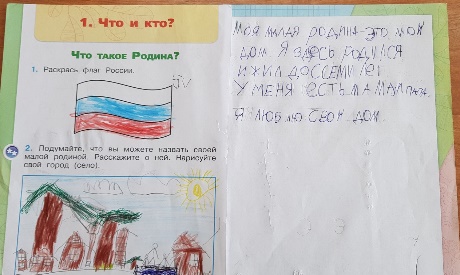 1. Что и кто?
Что такое Родина?
1. Раскрась флаг России.
2. Подумайте, что вы можете назвать своей
малой родиной. Расскажите о ней. Нарисуйте
свой город (село).
МОЯ МАЛАЯ РОДИНА-ЭТО МОЙ
ДОМ. Я ЗДЕСЬ РОДИЛСЯ
И ЖИЛ ДО СЕМИ ЛЕТ
У МЕНЯ ЕСТЬ МАМА ПАПА.
Я ЛЮБЛЮ СВОЙ ДОМ.